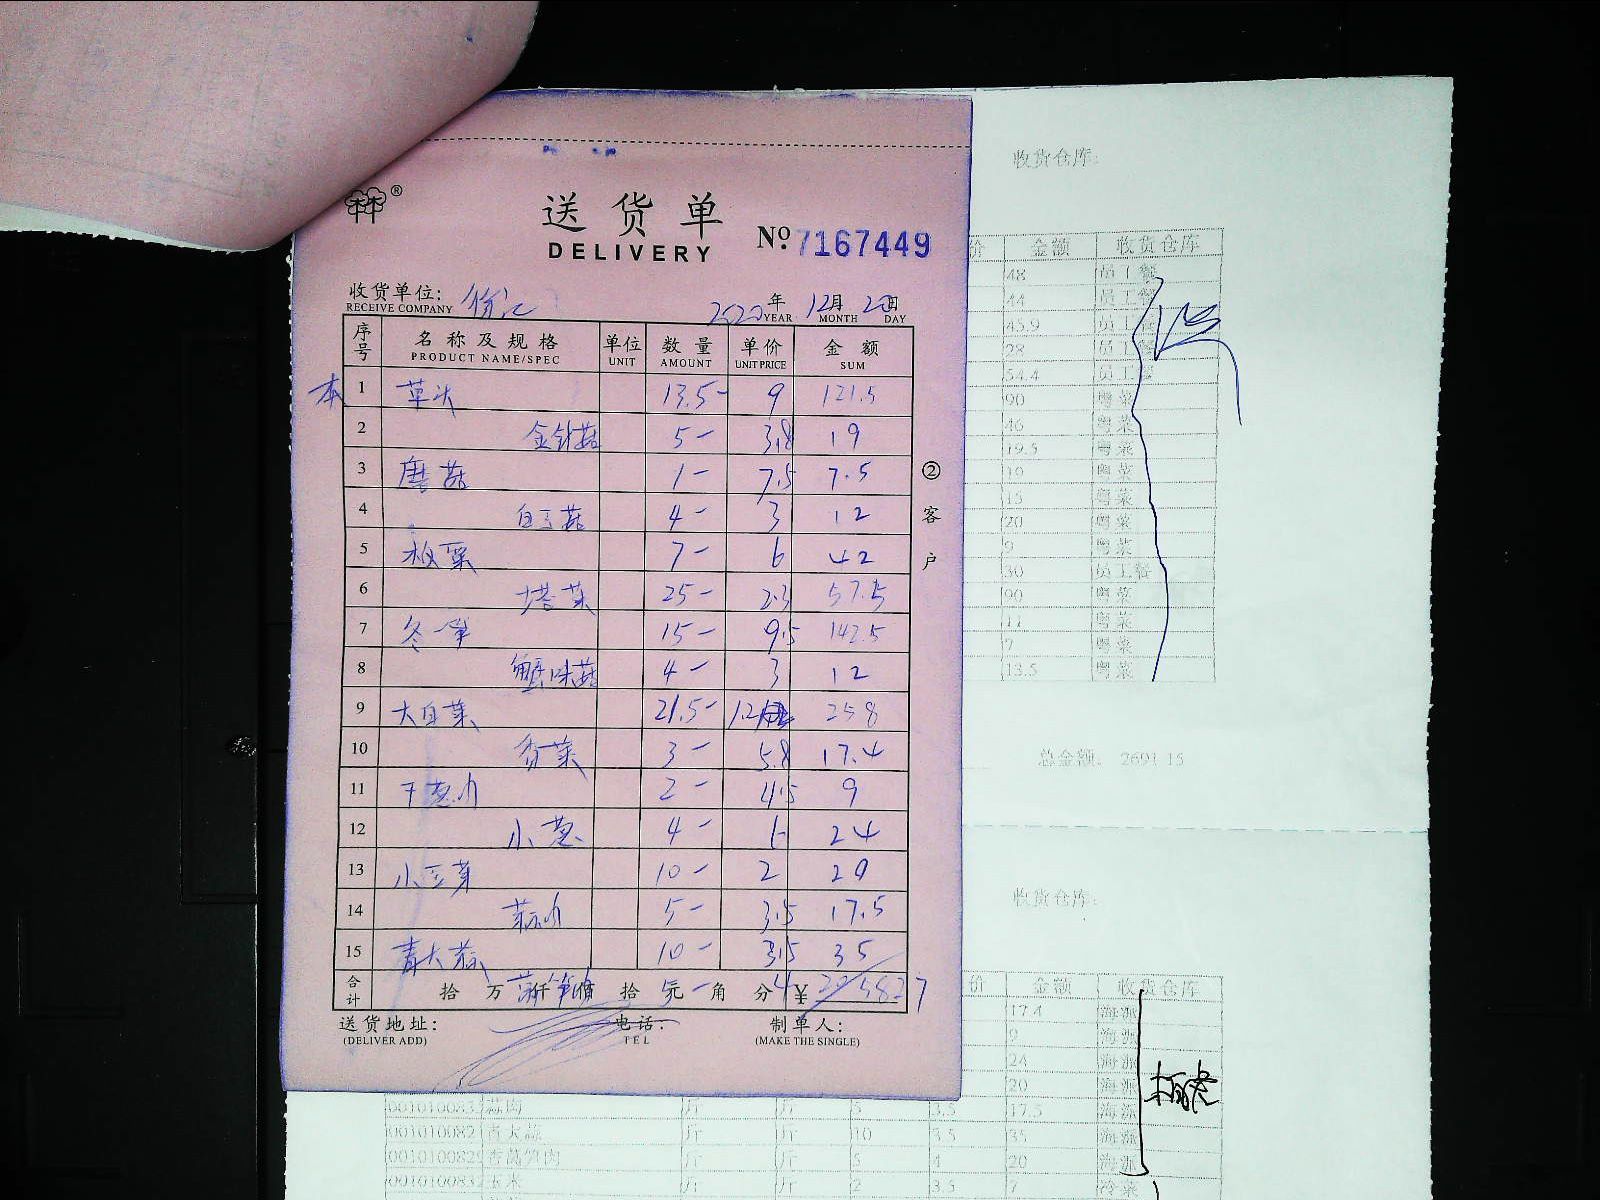 送货单
DELIVERY
№ 7167449
收货单位:
RECEIVE COMPANY
2020 年 12月 20日
YEAR MONTH DAY
序号 名称及规格 单位 数量 单价 金额
PRODUCT NAME/SPEC UNIT AMOUNT UNIT PRICE SUM
本 1 草头 13.5- 9 121.5
2 金针菇 5- 3.8 19
3 磨菇 1- 7.5 7.5
4 白玉菇 4- 3 12
5 板栗 7- 6 42
6 塔菜 25- 2.3 57.5
7 冬笋 15- 9.5 142.5
8 蟹味菇 4- 3 12
9 大白菜 21.5- 1.2 25.8
10 香菜 3- 5.8 17.4
11 干葱肉 2- 4.5 9
12 小葱 4- 6 24
13 小豆芽 10- 2 20
14 蒜肉 5- 3.5 17.5
15 青大蒜 10- 3.5 35
合计 拾 万 仟 佰 拾 元 角 分 ¥
5- 4 20 582.7
送货地址:
(DELIVER ADD)
电话:
TEL
制单人:
(MAKE THE SINGLE)
② 客户
收货仓库:
价 金额 收货仓库
48 员工餐
44 员工餐
45.9 员工餐
28 员工餐
54.4 员工餐
90 粤菜
46 粤菜
19.5 粤菜
19 粤菜
15 粤菜
20 粤菜
9 粤菜
30 员工餐
90 粤菜
11 粤菜
7 粤菜
13.5 粤菜
总金额: 2691.15
收货仓库:
价 金额 收货仓库
17.4 海派
9 海派
24 海派
20 海派
蒜肉 斤 斤 5 3.5 17.5 海派
青大蒜 斤 斤 10 3.5 35 海派
香莴笋肉 斤 斤 5 4 20 海派
玉米 斤 斤 2 3.5 7 冷菜